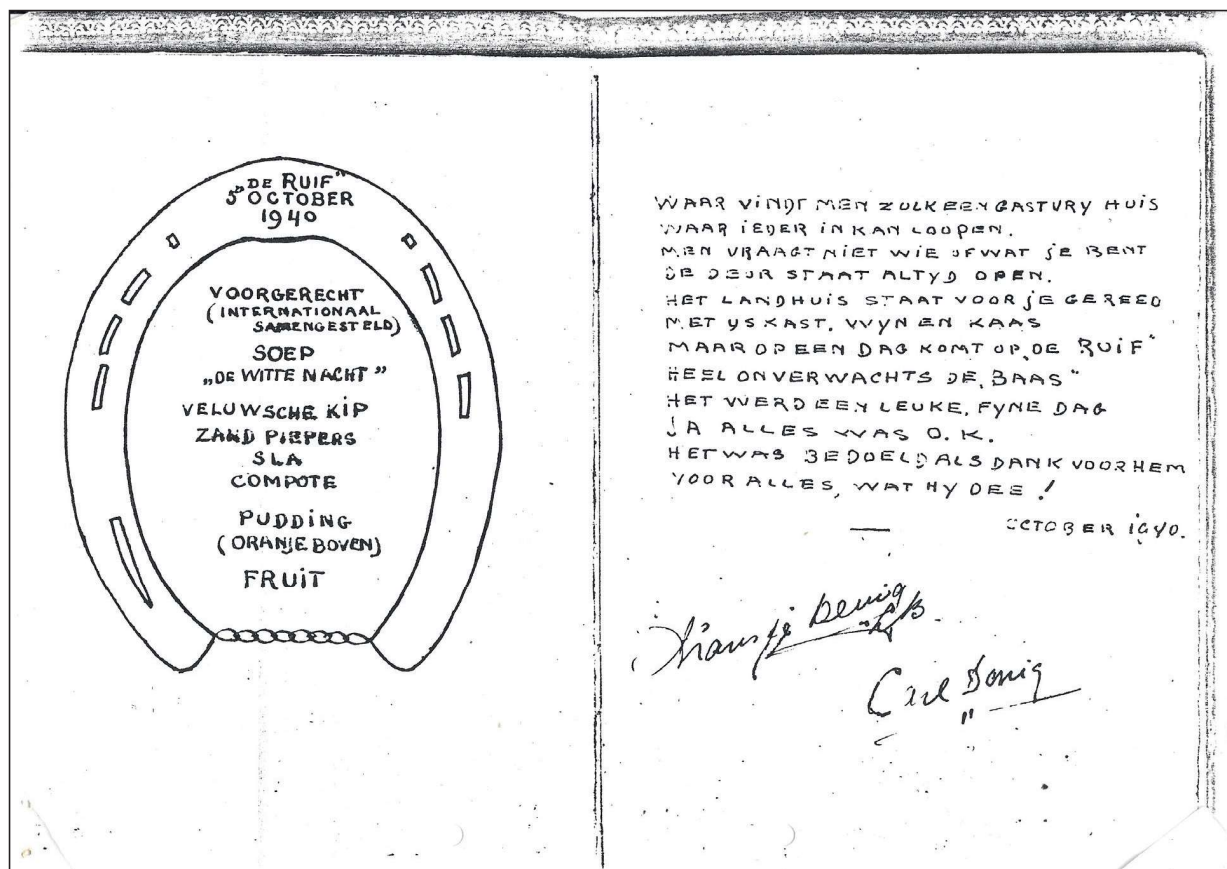 „DE RUIF"
5 OCTOBER
1940
VOORGERECHT
(INTERNATIONAAL
SAMENGESTELD)
SOEP
„DE WITTE NACHT"
VELUWSCHE KIP
ZAND PIEPERS
SLA
COMPOTE
PUDDING
(ORANJE BOVEN)
FRUIT
WAAR VINDT MEN ZULK EEN GASTVRY HUIS
WAAR IEDER IN KAN LOOPEN.
MEN VRAAGT NIET WIE OF WAT JE BENT
DE DEUR STAAT ALTYD OPEN.
HET LANDHUIS STAAT VOOR JE GEREED
MET YSKAST, WYN EN KAAS
MAAR OP EEN DAG KOMT OP „DE RUIF"
HEEL ONVERWACHTS DE „BAAS"
HET WERD EEN LEUKE, FYNE DAG
JA ALLES WAS O.K.
HET WAS BEDOELD ALS DANK VOOR HEM
VOOR ALLES, WAT HY DEE!
OCTOBER 1940.
Carl